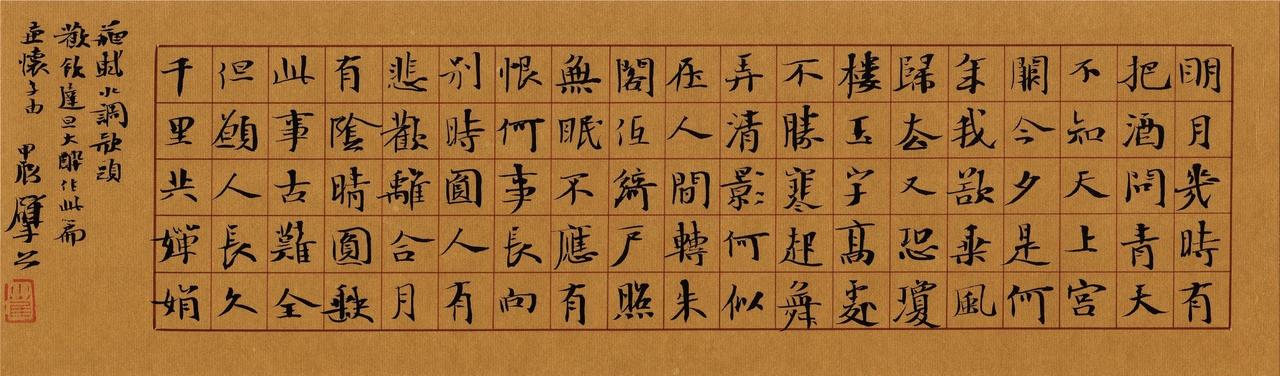 明月幾時有
把酒問青天
不知天上宮
闕今夕是何
年我欲乘風
歸去又恐瓊
樓玉宇高處
不勝寒起舞
弄清影何似
在人間轉朱
閣低綺戶照
無眠不應有
恨何事長向
別時圓人有
悲歡離合月
有陰晴圓缺
此事古難全
但願人長久
千里共嬋娟
蘇軾水調歌頭
歡飲達旦大醉作此篇
並懷子由 甲辰